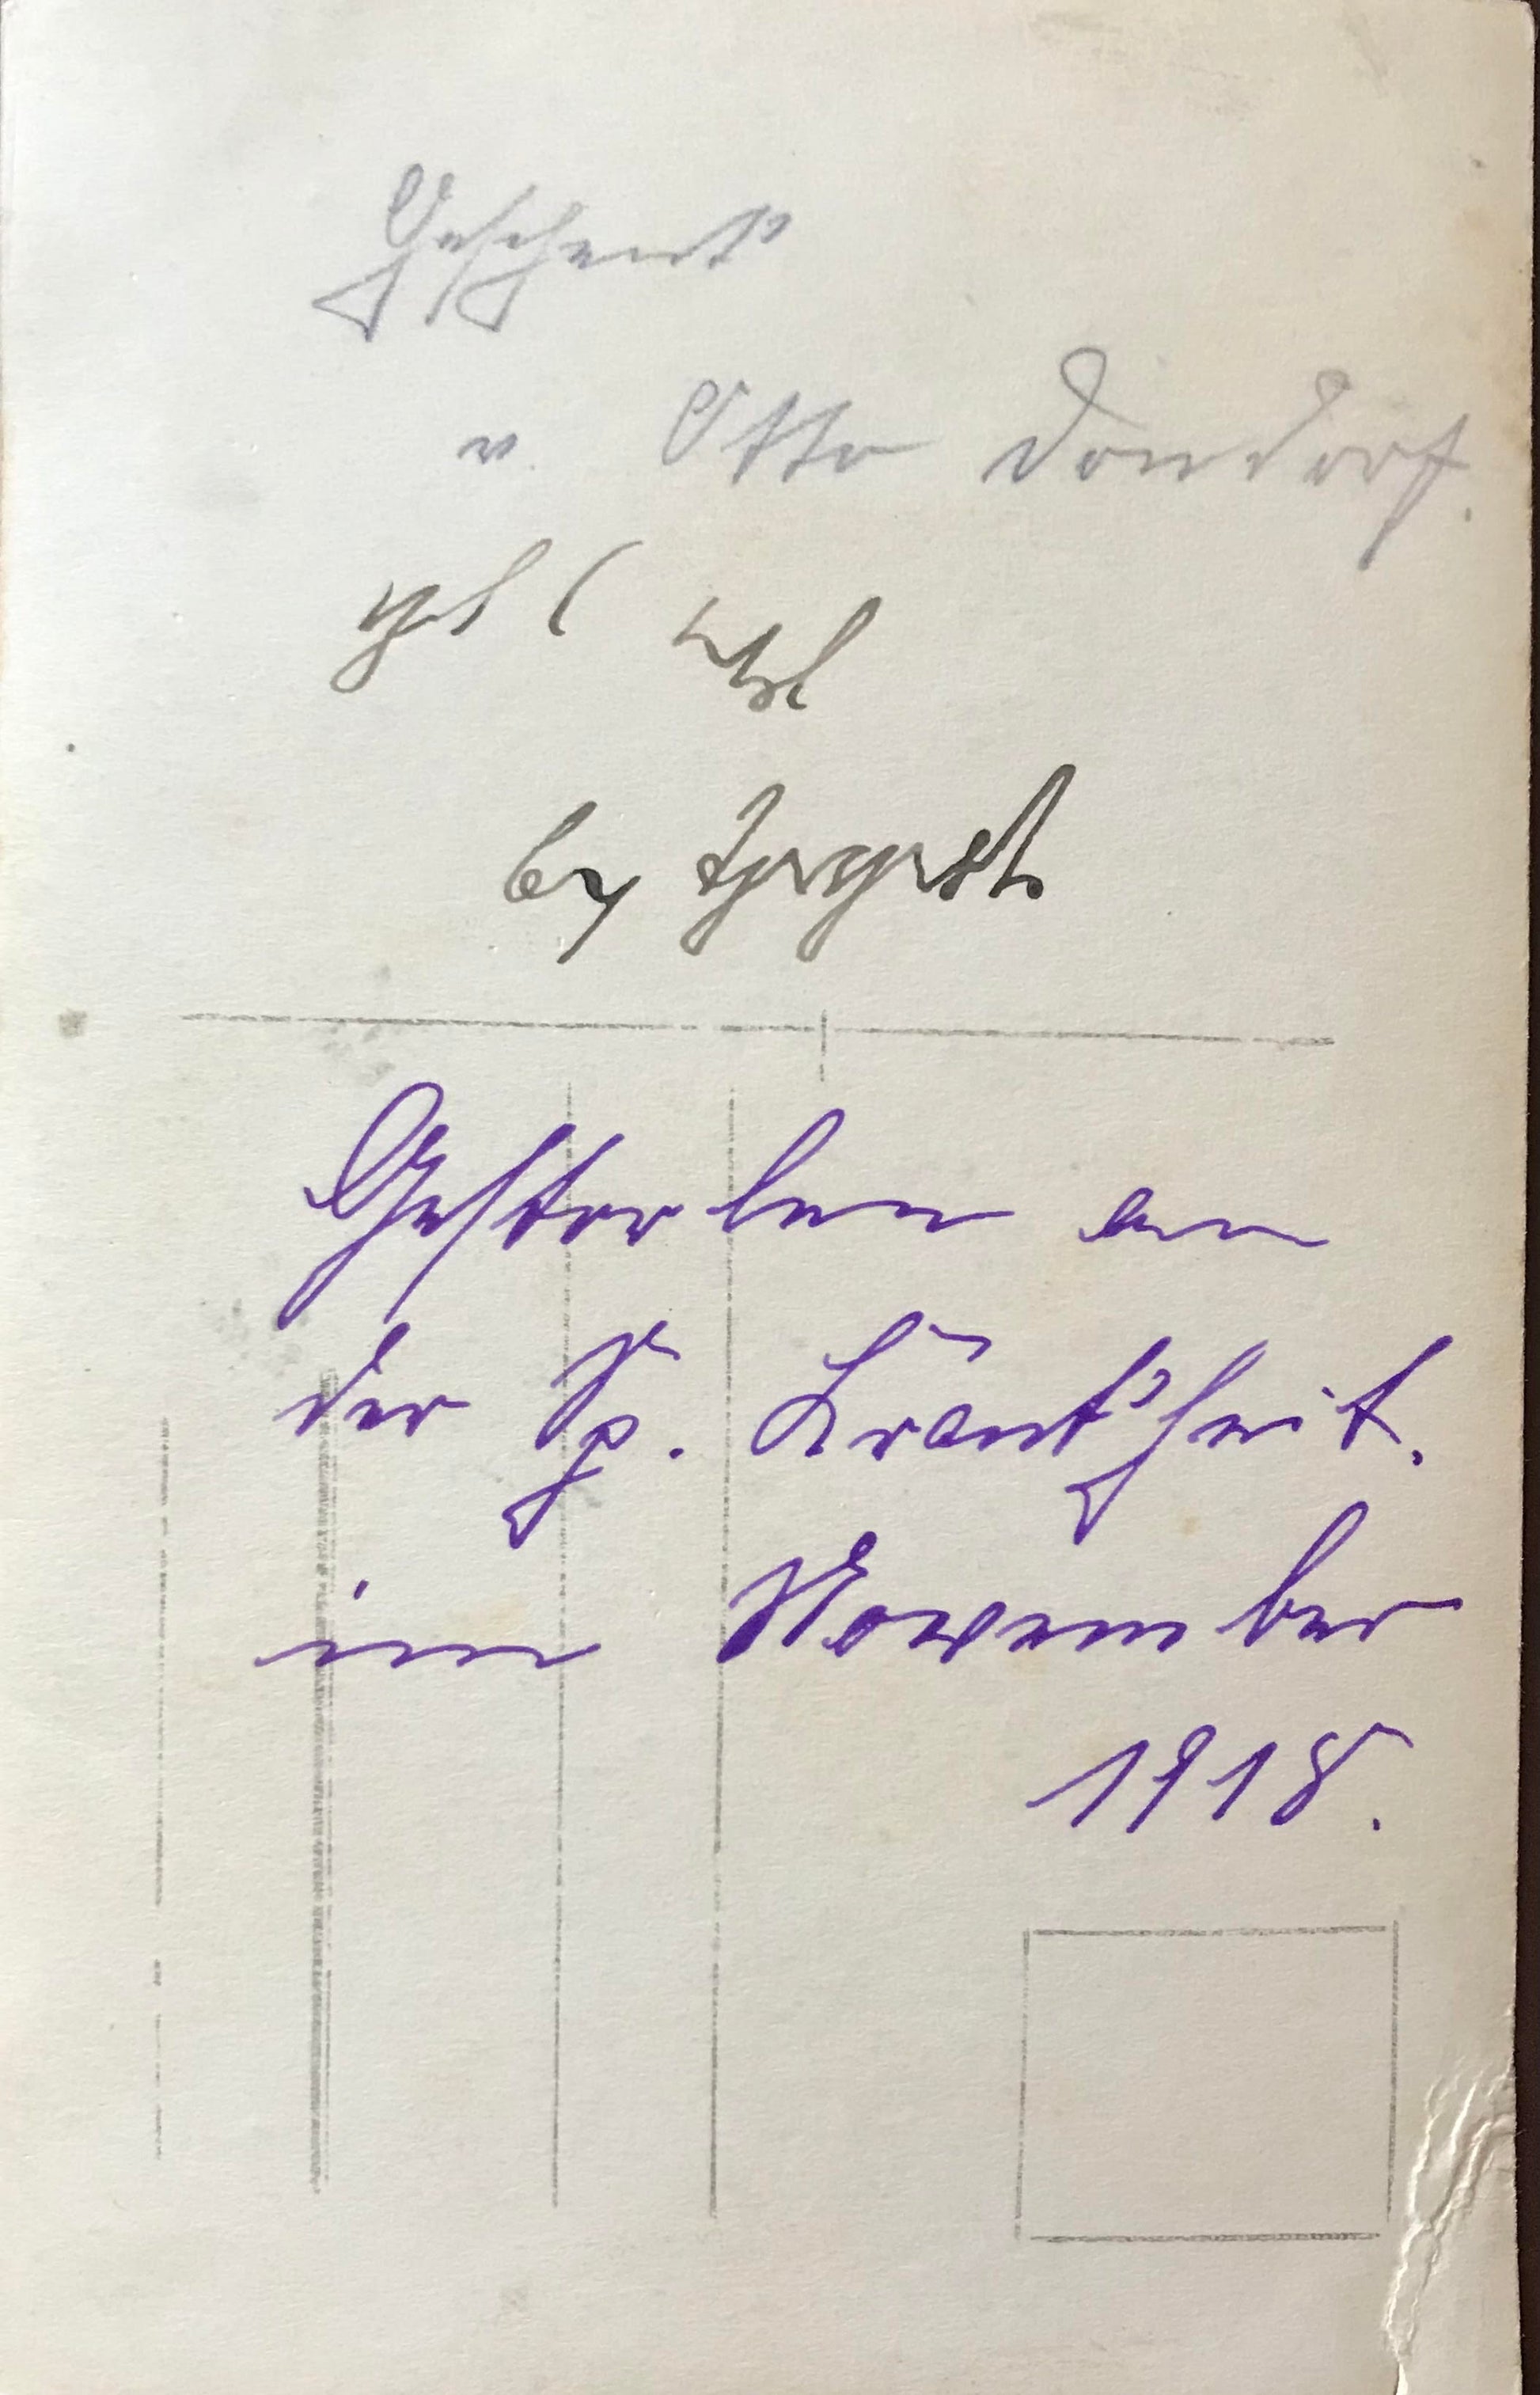 Geschenk
v. Otto Dondorf.
Gestorben an
der Sp. Krankheit.
im November
1918.